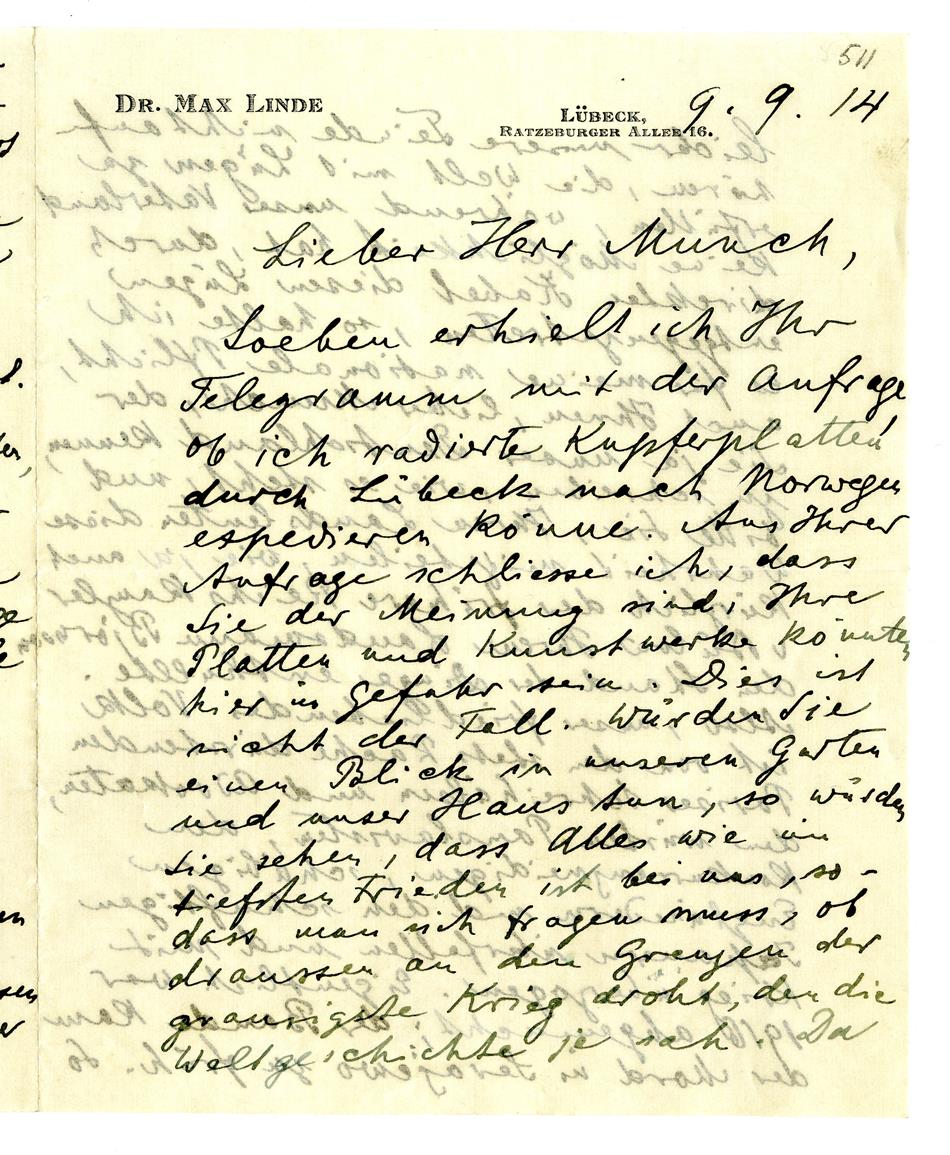 511
DR. MAX LINDE
LÜBECK, 9. 9. 14
RATZEBURGER ALLEE 16.
Lieber Herr Munch,
Soeben erhielt ich Ihr
Telegramm mit der Anfrage
ob ich radierte Kupferplatten
durch Lübeck nach Norwegen
expedieren könne. Aus Ihrer
Anfrage schliesse ich, dass
Sie der Meinung sind, Ihre
Platten und Kunstwerke könnten
hier in Gefahr sein. Dies ist
nicht der Fall. Würden Sie
einen Blick in unseren Garten
und unser Haus tun, so würden
Sie sehen, dass Alles wie im
tiefsten Frieden ist bei uns, so-
dass man sich fragen muss, ob
draussen an den Grenzen der
grausigste Krieg droht, den die
Weltgeschichte je sah. Da